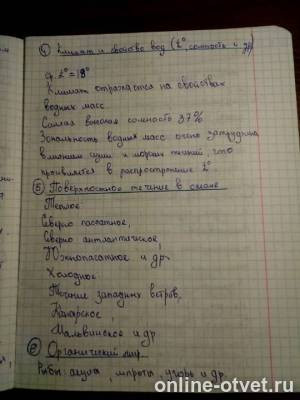 ④ Климат и свойство вод (t°, соность и др)
ср. t° = 18°
Климат отражается на свойствах
водных масс
Самая высокая соность 37%
Зональность водных масс очень затруднена
влиянием суши и морских течений, что
проявляется в распространение t°
⑤ Поверхностное течение в океане
Теплое
Северо пассатное,
Северо антлантическое,
Южнопасатное и др.
Холодное
Течение западных встров,
Канарское
Мальвинское и др
⑥ Органический мир.
Рыбы: акула, шпроты, угорь и др.
online-otvet.ru